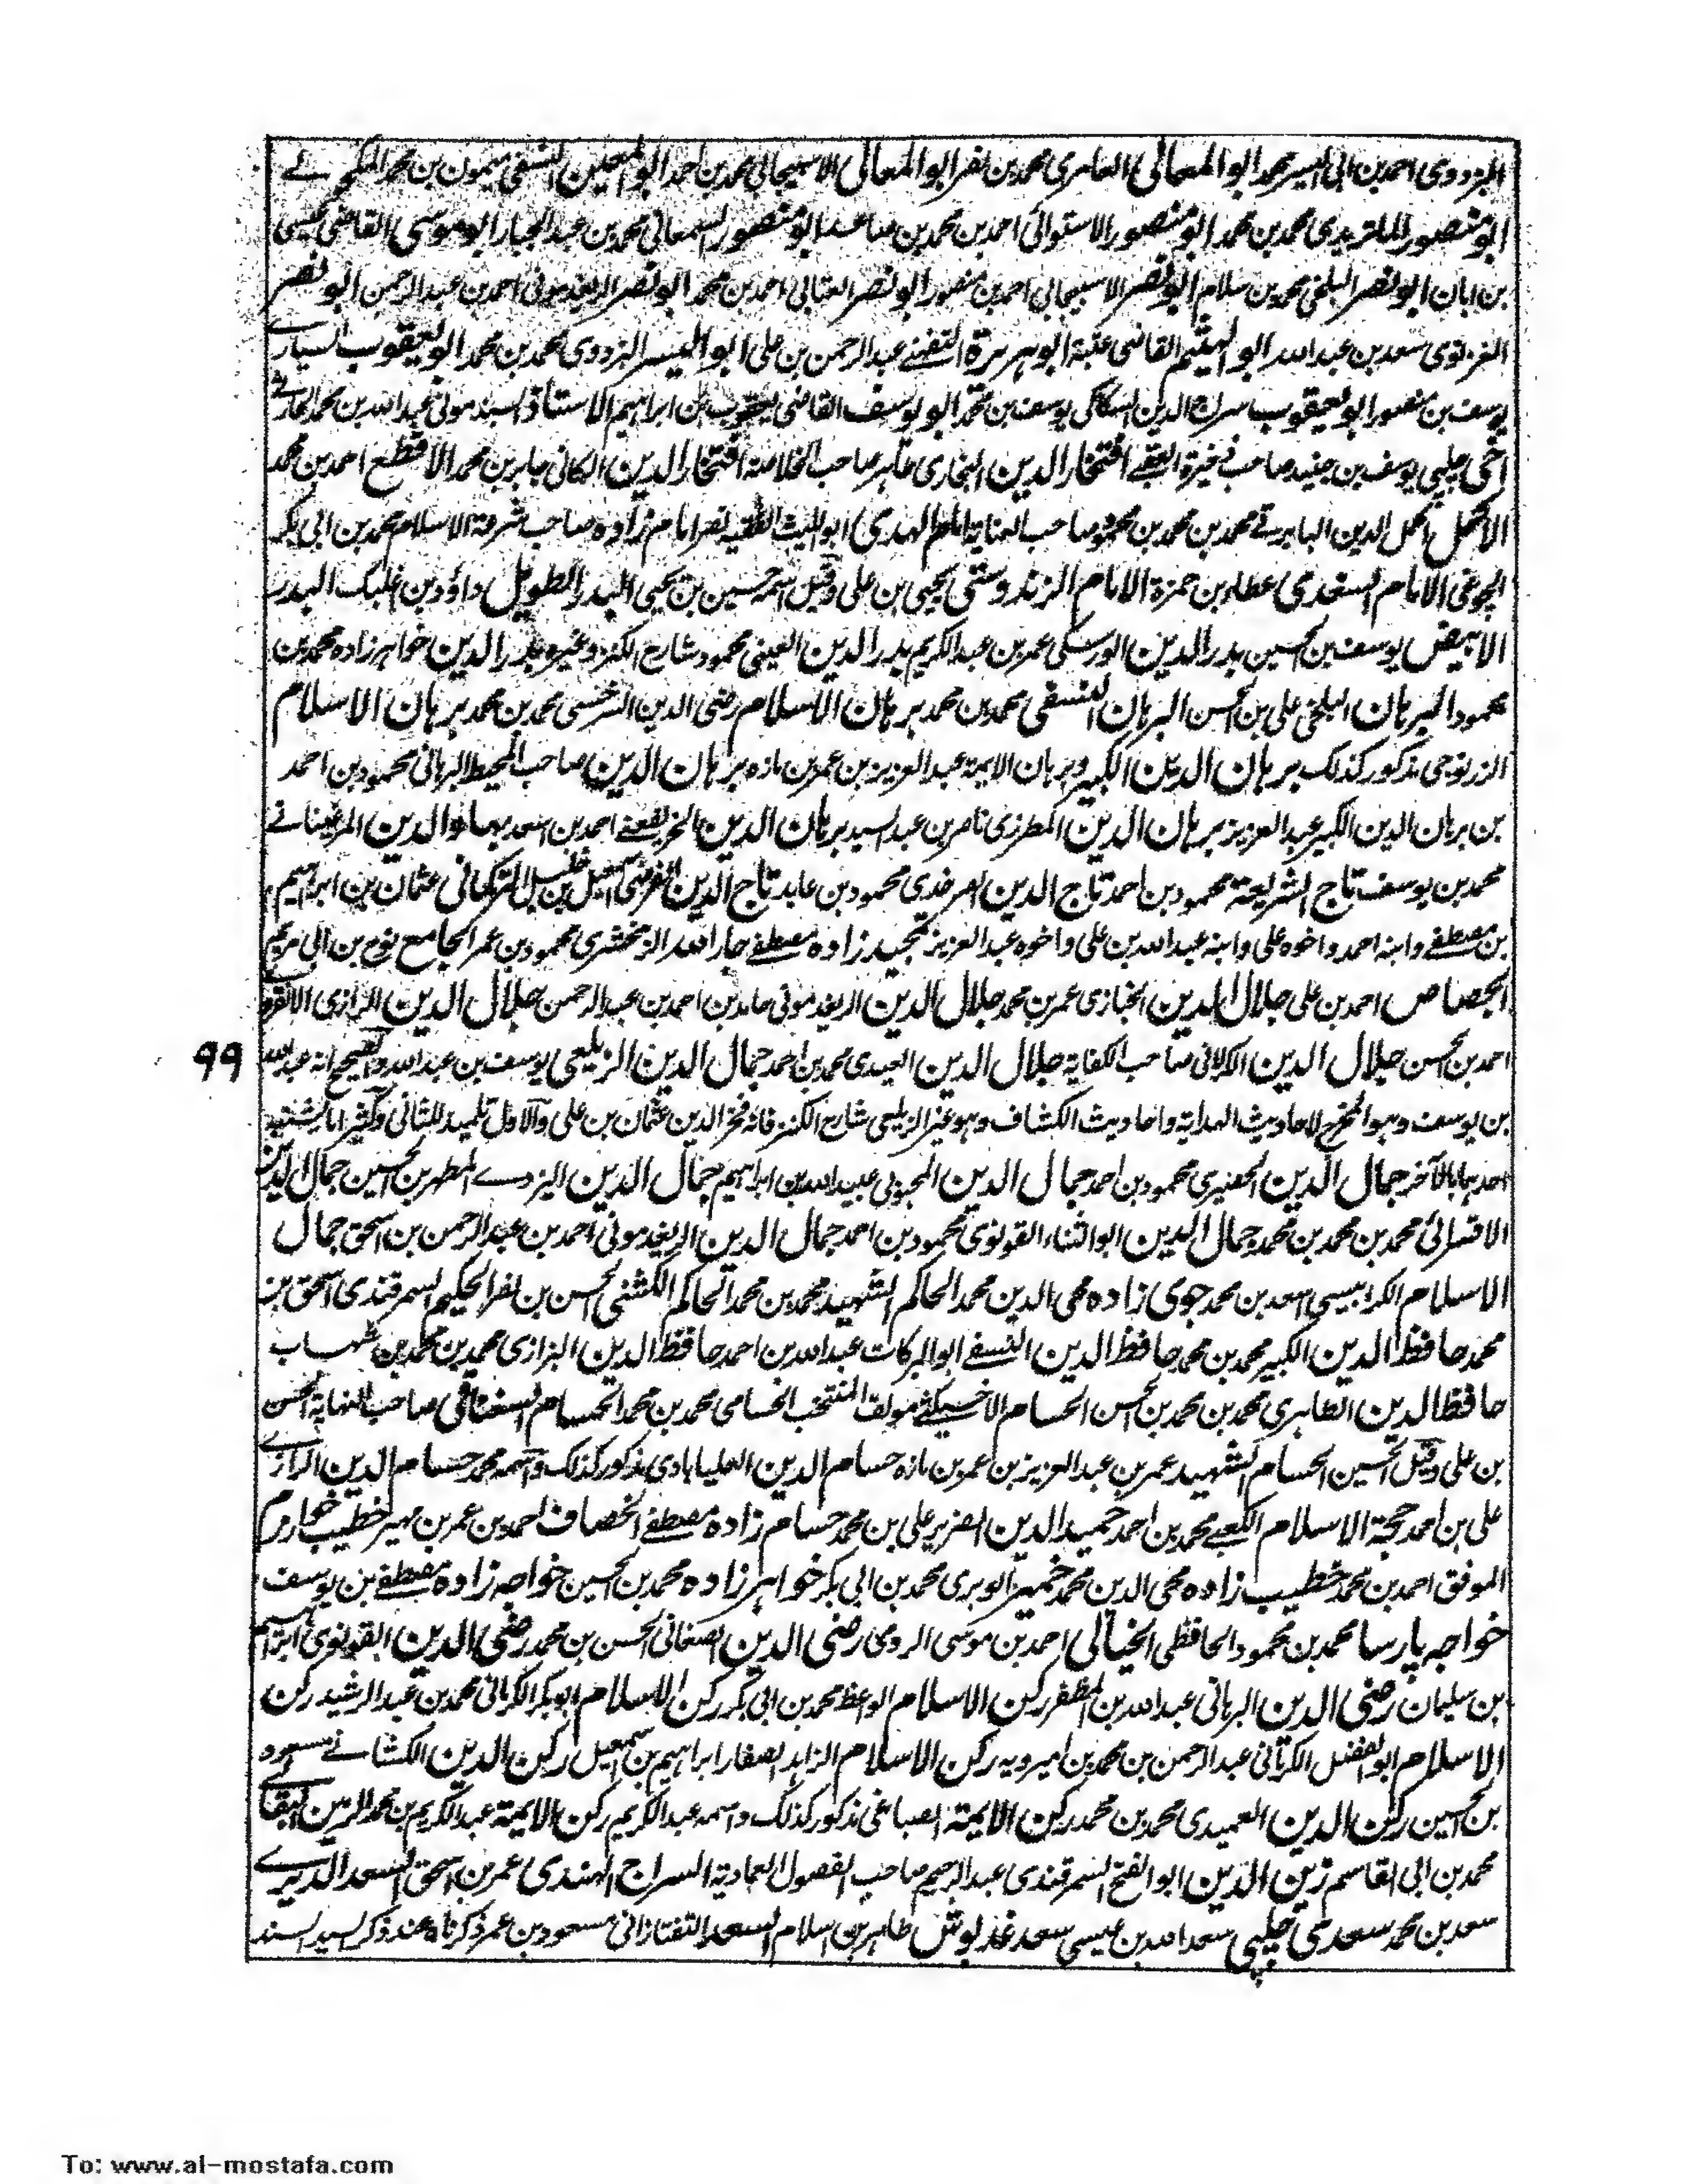 البزدوي احمد بن ابى اليسر محمد ابو المعالى العامرى محمد بن نصر ابو المعالى الاسبيجابى محمد بن احمد ابو المعين النسفى ميمون بن محمد المكحولے
ابو منصور الماتريدى محمد بن محمد ابو منصور الاستوائى احمد بن محمد بن صاعد ابو منصور السمعانى محمد بن عبد الجبار ابو موسى القاضى عيسى
بن ابان ابو نصر البلخى محمد بن سلام ابو نصر الاسبيجابى احمد بن منصور ابو نصر العتابى احمد بن محمد ابو نصر الريغدمونى احمد بن عبد الرحمن ابو نصر
الغزنوى سعد بن عبد الله ابو الهيثم القاضى عتبة ابو هريرة الثقفے عبد الرحمن بن على ابو اليسر البزدوى محمد بن محمد ابو يعقوب السيارے
يوسف بن منصور ابو يعقوب سراج الدين السكاكى يوسف بن محمد ابو يوسف القاضى يعقوب بن ابراهيم الاستاذ السبذمونى عبد الله بن محمد الحارثے
اخى چلپى يوسف بن جنيد صاحب ذخيرة العقبے افتخار الدين البخارى طاهر صاحب الخلاصة افتخار الدين الكاثى جابر بن محمد الاقطع احمد بن محمد
الاكمل اكمل الدين البابرتے محمد بن محمد بن محمود صاحب العناية امام الهدى ابو الليث الفقيه نصر امام زاده صاحب شرعة الاسلام محمد بن ابى بكر
الجوغى الامام السغدى عطاء بن حمزة الامام الزندوستى يحيى بن على وقيل اسمه حسين بن يحيى البدر الطويل داؤد بن اغلبك البدر
الابيض يوسف بن الحسين بدر الدين الورسكى عمر بن عبد الكريم بدر الدين العينى محمود شارح الكنز وغيره بدر الدين خواهر زاده محمد بن
محمود البرهان البلخى على بن الحسن البرهان النسفى محمد بن محمد برهان الاسلام رضى الدين السرخسى محمد بن محمد برهان الاسلام
الزرنوجى مذكور كذلك برهان الدين الكبير وبرهان الايمة عبد العزيز بن عمر بن مازه برهان الدين صاحب المحيط البرهانى محمود بن احمد
بن برهان الدين الكبير عبد العزيز برهان الدين المطرزى ناصر بن عبد السيد برهان الدين الخريفعنے احمد بن اسعد بهاء الدين المرغينانے
محمد بن يوسف تاج الشريعة محمود بن احمد تاج الدين محمود بن عابد تاج الدين الفرضى اسمعيل بن خليل التركمانى عثمان بن ابراهيم
بن مصطفے وابنه احمد واخوه على وابنه عبد الله بن على واخوه عبد العزيز تمجيد زاده مصطفے جار الله الزمخشرى محمود بن عمر الجامع نوح بن ابى مريم
الجصاص احمد بن على جلال الدين الخبازى عمر بن محمد جلال الدين الريغدمونى حامد بن احمد بن عبد الرحمن جلال الدين الرازى الانقروے
احمد بن الحسن جلال الدين الكرلانى صاحب الكفاية جلال الدين العيدى محمد بن احمد جمال الدين الزيلعى يوسف بن عبد الله والصحيح انه عبد الله
99
بن يوسف وهو المخرج لاحاديث الهداية واحاديث الكشاف وهو غير الزيلعى شارح الكنز فانه فخر الدين عثمان بن على والاول تلميذ للثانى وكثيرا ما يشتبه
احدهما بالآخر جمال الدين الحصيرى محمود بن احمد جمال الدين المحبوبى عبيد الله بن ابراهيم جمال الدين اليزدے المطهر بن الحسين جمال الدين
الاقسرائى محمد بن محمد بن محمد جمال الدين ابو الثناء القونوى محمود بن احمد جمال الدين الريغدمونى احمد بن عبد الرحمن بن اسحق جمال
الاسلام الكرابيسى اسعد بن محمد جوى زاده محى الدين محمد الحاكم الشهيد محمد بن محمد الحاكم الكشنى الحسن بن نصر الحكيم السمرقندى اسحق بن
محمد حافظ الدين الكبير محمد بن محمد حافظ الدين النسفے ابو البركات عبد الله بن احمد حافظ الدين البزازى محمد بن محمد بن شهاب
حافظ الدين الطاهرى محمد بن محمد بن الحسن الحسام الاخسيكثے مؤلف المنتخب الحسامى محمد بن محمد الحسام السغناقى صاحب النهاية الحسن
بن على وقيل الحسين الحسام الشهيد عمر بن عبد العزيز بن عمر بن مازه حسام الدين العليابادى مذكور كذلك واسمه محمد حسام الدين الرازے
على بن احمد حجة الاسلام الكعبے محمد بن احمد حميد الدين الضرير على بن محمد حسام زاده مصطفے الخصاف احمد بن عمر بن مهير خطيب خوارزم
الموفق احمد بن محمد خطيب زاده محى الدين محمد خمير الوبرى محمد بن ابى بكر خواهر زاده محمد بن الحسين خواجه زاده مصطفے بن يوسف
خواجه پارسا محمد بن محمود الحافظى الخيالى احمد بن موسى الرومى رضى الدين الصغانى الحسن بن محمد رضى الدين القونوى ابراهيم
بن سليمان رضى الدين البرهانى عبد الله بن المظفر ركن الاسلام الواعظ محمد بن ابى بكر ركن الاسلام ابو بكر الكرمانى محمد بن عبد الرشيد ركن
الاسلام ابو الفضل الكرمانى عبد الرحمن بن محمد بن اميرويه ركن الاسلام الزاهد الصفار ابراهيم بن اسمعيل ركن الدين الكشانے مسعود
بن الحسين ركن الدين العميدى محمد بن محمد ركن الايمة الصباغى مذكور كذلك واسمه عبد الكريم ركن الايمة عبد الكريم بن محمد الزين البقالے
محمد بن ابى القاسم زين الدين ابو الفتح السمرقندى عبد الرحيم صاحب الفصول العمادية السراج الهندى عمر بن اسحق السعد الديرے
سعد بن محمد سعدى چلپى سعد الله بن عيسى سعد غديوش طاهر بن اسلام السعد التفتازانى مسعود بن عمر ذكرناه عند ذكر السيد السند
To: www.al-mostafa.com